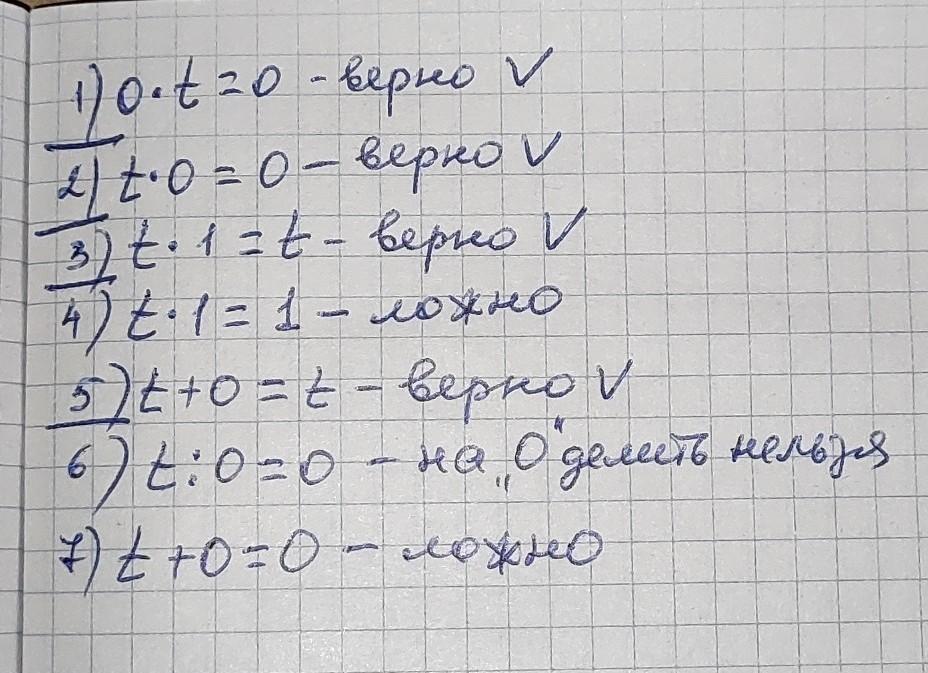 1) 0·t = 0 - верно V
2) t·0 = 0 - верно V
3) t·1 = t - верно V
4) t·1 = 1 - ложно
5) t+0 = t - верно V
6) t:0 = 0 - на „0“ делить нельзя
7) t+0=0 - ложно